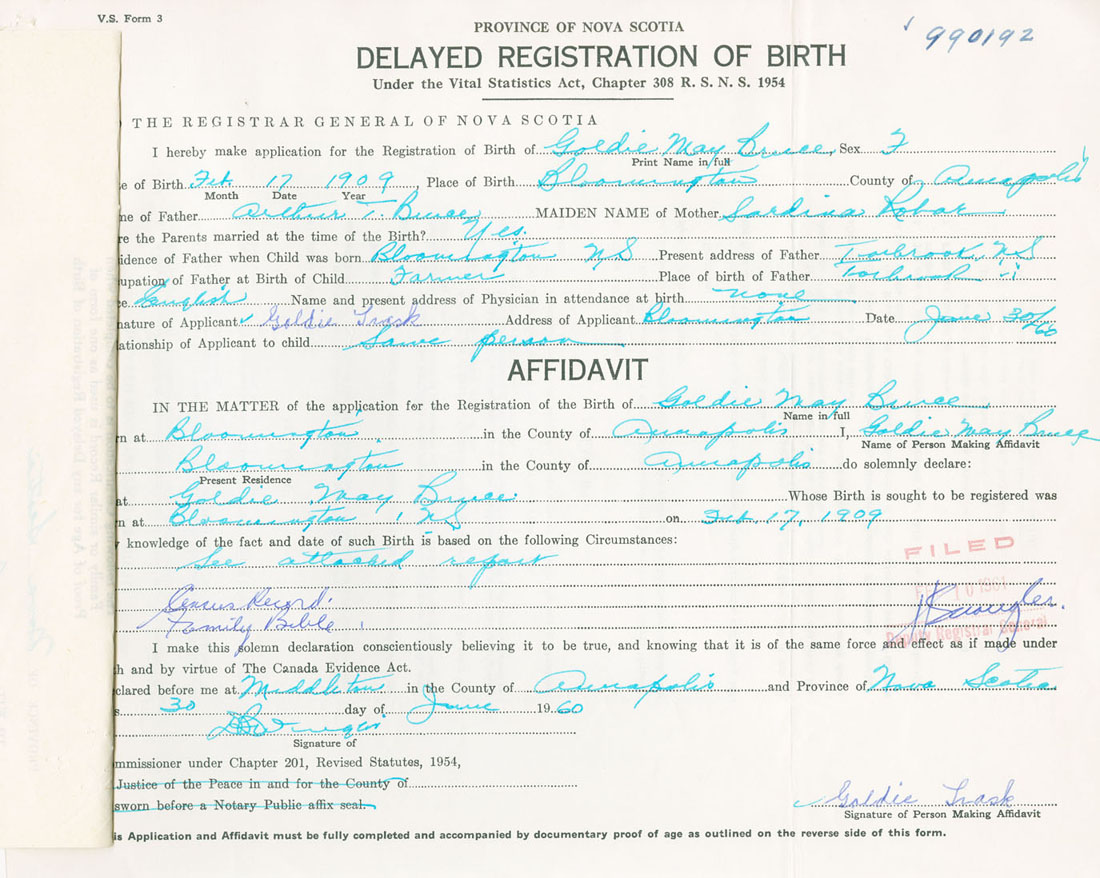 V.S. Form 3
PROVINCE OF NOVA SCOTIA
990192
DELAYED REGISTRATION OF BIRTH
Under the Vital Statistics Act, Chapter 308 R. S. N. S. 1954
THE REGISTRAR GENERAL OF NOVA SCOTIA
I hereby make application for the Registration of Birth of Goldie May Bruce, Sex F
Print Name in full
e of Birth Feb. 17 1909, Place of Birth Bloomington County of Annapolis
Month Date Year
me of Father Arthur T. Bruce MAIDEN NAME of Mother Sardina Robar
re the Parents married at the time of the Birth? Yes.
idence of Father when Child was born Bloomington NS Present address of Father Torbrook, NS
upation of Father at Birth of Child Farmer Place of birth of Father Torbrook "
e English Name and present address of Physician in attendance at birth none
nature of Applicant Goldie Trask Address of Applicant Bloomington Date June 30/60
ationship of Applicant to child Same person
AFFIDAVIT
IN THE MATTER of the application for the Registration of the Birth of Goldie May Bruce
Name in full
n at Bloomington, in the County of Annapolis I, Goldie May Bruce
Name of Person Making Affidavit
Bloomington in the County of Annapolis do solemnly declare:
Present Residence
at Goldie May Bruce Whose Birth is sought to be registered was
n at Bloomington, NS on Feb 17, 1909
y knowledge of the fact and date of such Birth is based on the following Circumstances:
See attached report
FILED
10 1961
Census Record.
Family Bible.
Deputy Registrar General
I make this solemn declaration conscientiously believing it to be true, and knowing that it is of the same force and effect as if made under
h and by virtue of The Canada Evidence Act.
clared before me at Middleton in the County of Annapolis and Province of Nova Scotia
s 30 day of June 1960
Signature of
mmissioner under Chapter 201, Revised Statutes, 1954,
Justice of the Peace in and for the County of
sworn before a Notary Public affix seal.
Goldie Trask
Signature of Person Making Affidavit
is Application and Affidavit must be fully completed and accompanied by documentary proof of age as outlined on the reverse side of this form.